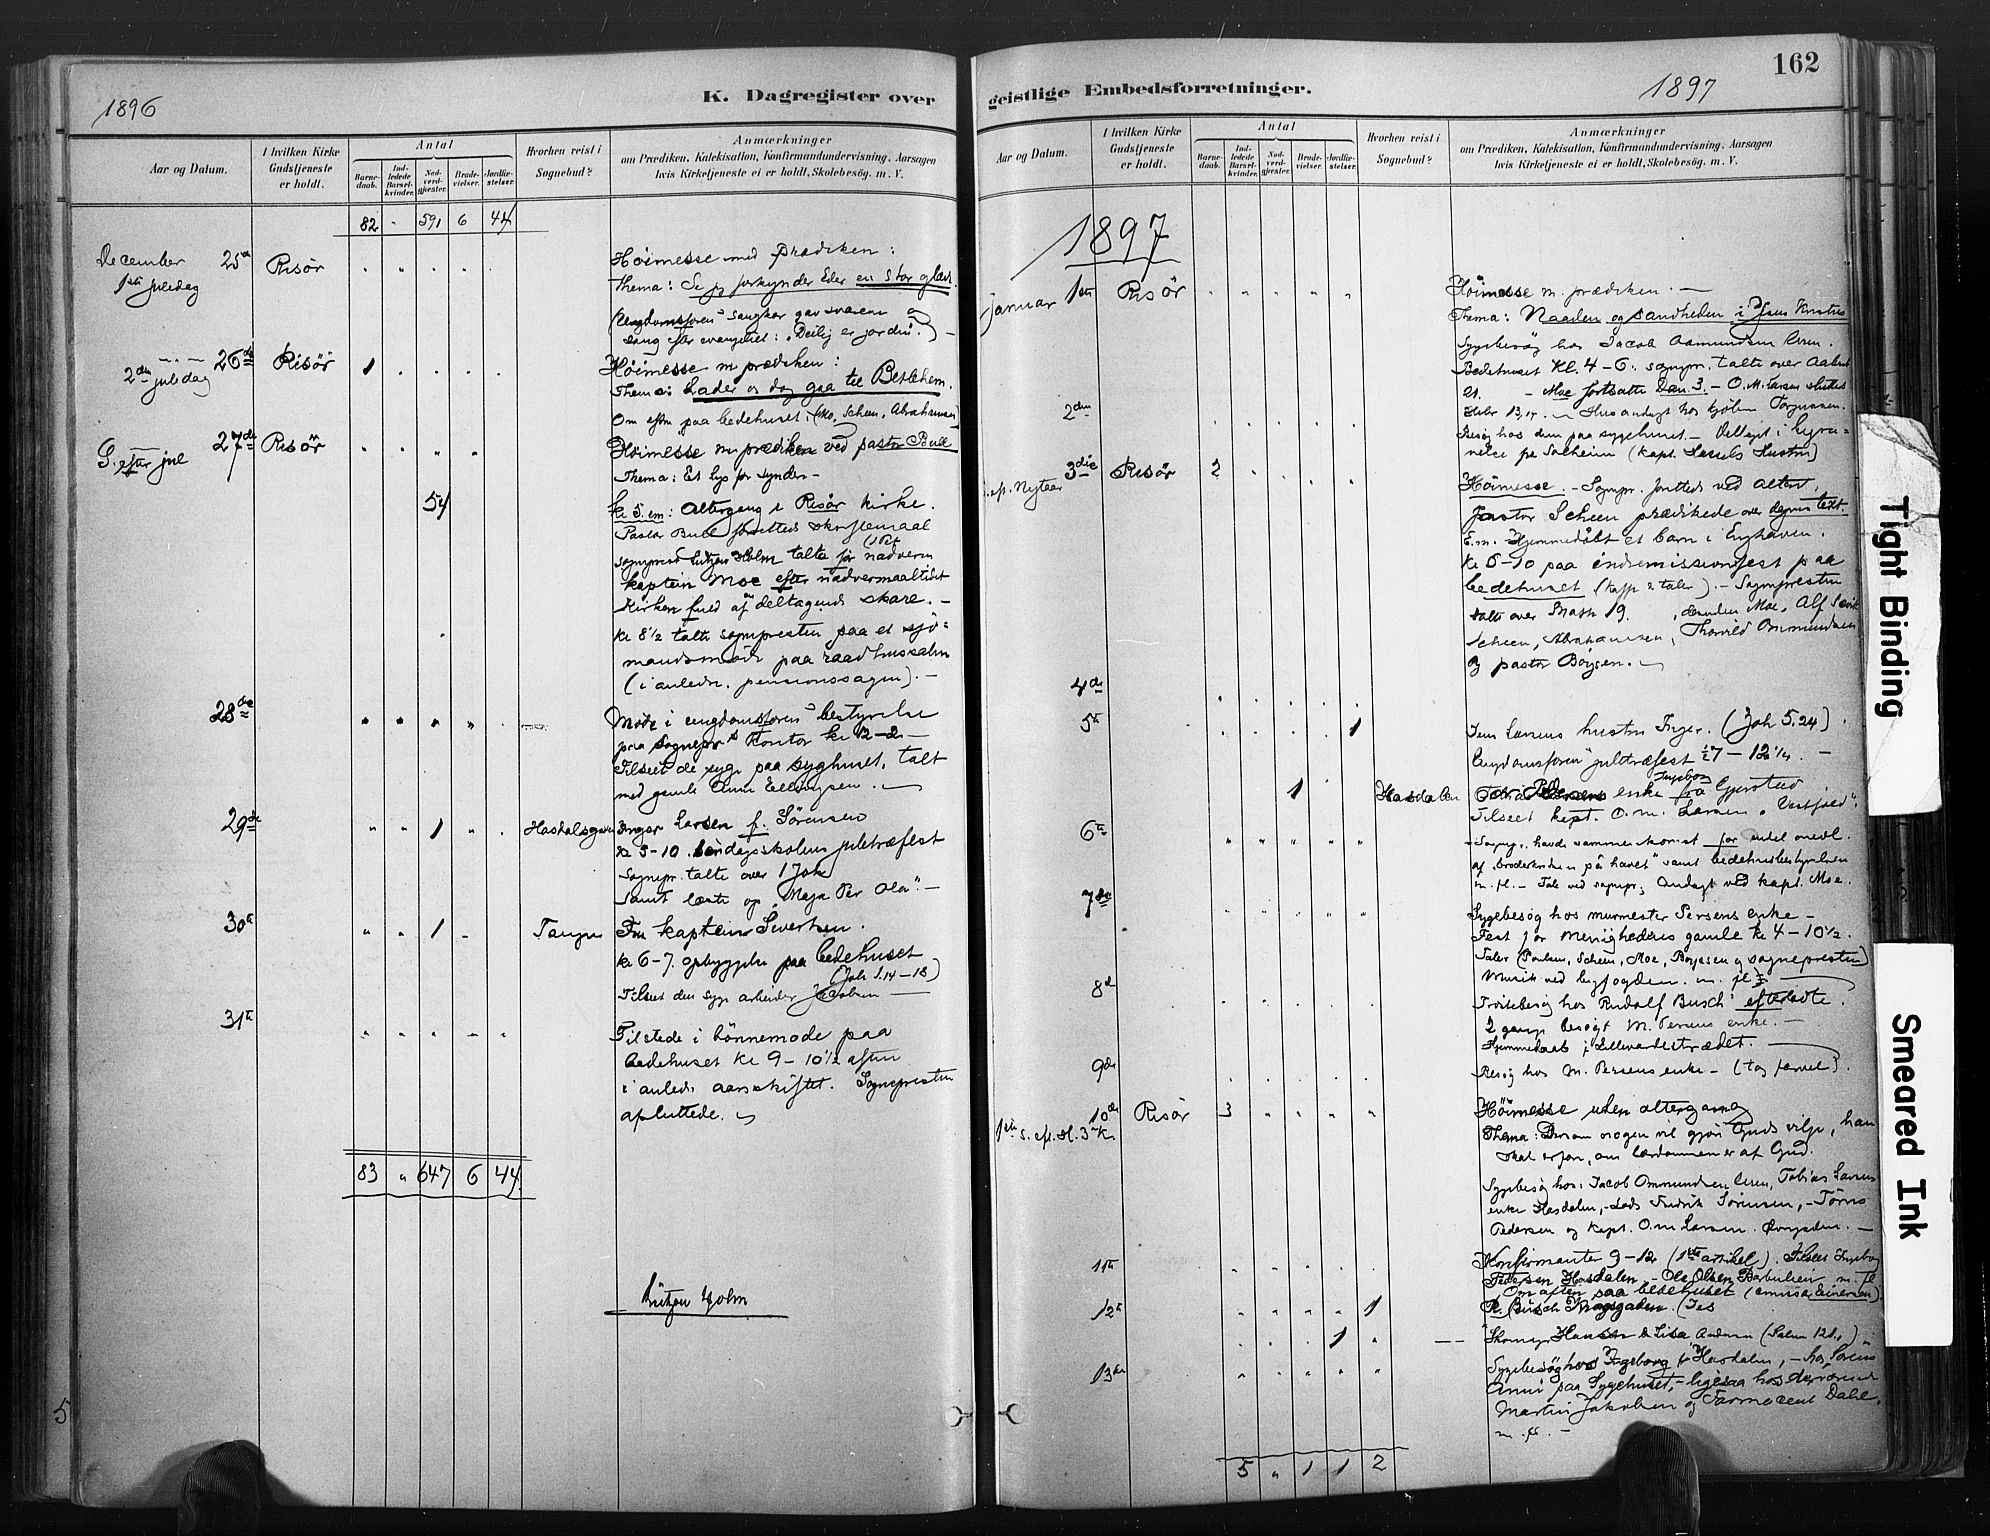 1896
K. Dagregister over
Aar og Datum.
I hvilken Kirke Gudstjeneste er holdt.
Antal
Barnedaab.
Indledede Barselkvinder.
Nadverdgjester.
Brudevielser.
Jordfæstelser.
Hvorhen reist i Sognebud?
Anmærkninger
om Prædiken, Katekisation, Konfirmandundervisning, Aarsagen
hvis Kirketjeneste ei er holdt, Skolebesög. m. V.
82 " 591 6 44
December 25de Risør
1ste juledag
Høimesse med prædiken:
Thema: Se jeg forkynder Eder en stor glæde.
sang efter evangeliet: "Deilig er jorden".) -
26de Risør 1
2den juledag
Høimesse m prædiken:
Thema: Lader os dog gaa til Betlehem.
Om eftm paa bedehuset (Mo, Scheen, Abrahamsen)
27de Risør
S. efter jul
Høimesse m prædiken ved pastor Bull
Thema: Et lys for
54
kl 5 em: Altergang i Risør kirke.
Pastor Bull forrettede skriftemaal
sogneprest Lützow Holm talte før nadveren
kaptein Moe efter nadvermaaltidet
Kirken fuld af deltagende skare. -
kl 8 1/2 talte sognepresten paa et sjø=
mandsmøde paa raadhussalen
(i anledn. pensionssagen). -
28de
Møde i ungdomsforen bestyrelse
paa Sognepr s kontor kl 12-2 -
Tilseet de syge paa syghuset, talt
med gamle
29de 1
Inger Larsen f. Sørensen
kl 5-10 Søndagsskolens juletræfest
Sognepr. talte over 1 Joh
samt læste op "Maja Per Ola". -
30te 1 Tangen
Fru kaptein Sivertsen.
kl 6-7. opbyggelse paa bedehuset
(Joh 1.14-18)
Tilseet den syge arbeider Jacobsen
31te
Tilstede i bønnemøde paa
bedehuset kl 9-10 1/2 aften
i anledn aarsskiftet. Sognepresten
afsluttede.
83 " 647 6 44
Lützow Holm
5
geistlige Embedsforretninger.
1897
162
Aar og Datum.
I hvilken Kirke Gudstjeneste er holdt.
Antal
Barnedaab.
Indledede Barselkvinder.
Nadverdgjester.
Brudevielser.
Jordfæstelser.
Hvorhen reist i Sognebud?
Anmærkninger
om Prædiken, Katekisation, Konfirmandundervisning, Aarsagen
hvis Kirketjeneste ei er holdt, Skolebesög. m. V.
1897
Januar 1ste Risør
Høimesse m. prædiken. -
Thema: Naaden og sandheden i Jesus Kristus
Sygebesøg hos Jacob Aamundsen
Bedehuset Kl. 4-6. sognepr. talte over
21. - Moe fortsatte Dan 3. - O. M. Larsen sluttet
2den
Hebr 13,14. - Husandagt hos kjøbm Torjussen.
Besøg hos dem paa sygehuset. -
3die Risør 2
S. ef. Nytaar
Høimesse. - Sognepr. forrettede ved alteret,
Pastor Scheen prædikede over dagens text -
E.m. Hjemmedøbt et barn i Enghaven.
kl 5-10 paa indremissionsfest paa
bedehuset (kaffe & taler). - Sognepresten
talte over Math 19. desuden Moe, Alf
Scheen, Abrahamsen, Thorvald Ommundsen
og pastor Borjsen.
4de
5te 1
Jens Larsens hustru Inger. (Joh 5.24)
Ungdomsforen juletræfest 1/2 7 - 12 1/4. -
1 Hasdalen
enke Ingeborg fra Gjerstad
Tilseet kapt. O. M. Larsen
6te
af "broderkreds på havet" samt bedehusbestyrelsen
m. fl. - Tale ved sognepr, andagt ved kapt. Moe.
7de
Sygebesøg hos murmester Persens enke -
Fest for Menighedens gamle kl 4-10 1/2.
Taler (Poulsen, Scheen, Moe, Borjesen og sognepresten)
Musik ved byfogden. m. fl
8de
Trøstebesøg hos Rudolf Busch's efterladte.
2 gange besøgt M. Persens enke. -
Hjemmedaab i Lillevardestrædet.
9de
Besøg hos M. Persens enke - (tog farvel).
10de Risør 3
1ste s. ef. H. 3 K.
Høimesse uden altergang
Thema: Dersom nogen vil gjøre Guds vilje, han
skal erfare, om lærdommen er af Gud.
Sygebesøg hos: Jacob Ommundsen Tobias Larsens
enke Hasdalen, - Lods Fredrik Sørensen, -
Pedersen og kapt. O. M. Larsen.
11te
Konfirmanter 9-12 (1ste artikel). Tilseet Ingeborg
Pedersen Hasdalen, - Ole Olsen m. fl
Om aften paa bedehuset (emissær Einersen)
12te 1
R. Busch
1
Skomager Hansen & Lisa Andersen (Salme 121.)
13de
Sygebesøg hos Ingeborg P Hasdalen, - hos Sørens
Anne paa Sygehuset, - ligesaa hos derværende
Martin Jakobsen og Farmaceut Dahl.
m. fl. -
5 " 1 1 2
Tight Binding
Smeared Ink